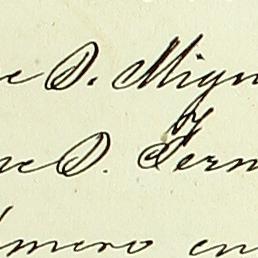 e D. Migu
ne D. Fern
úmero en